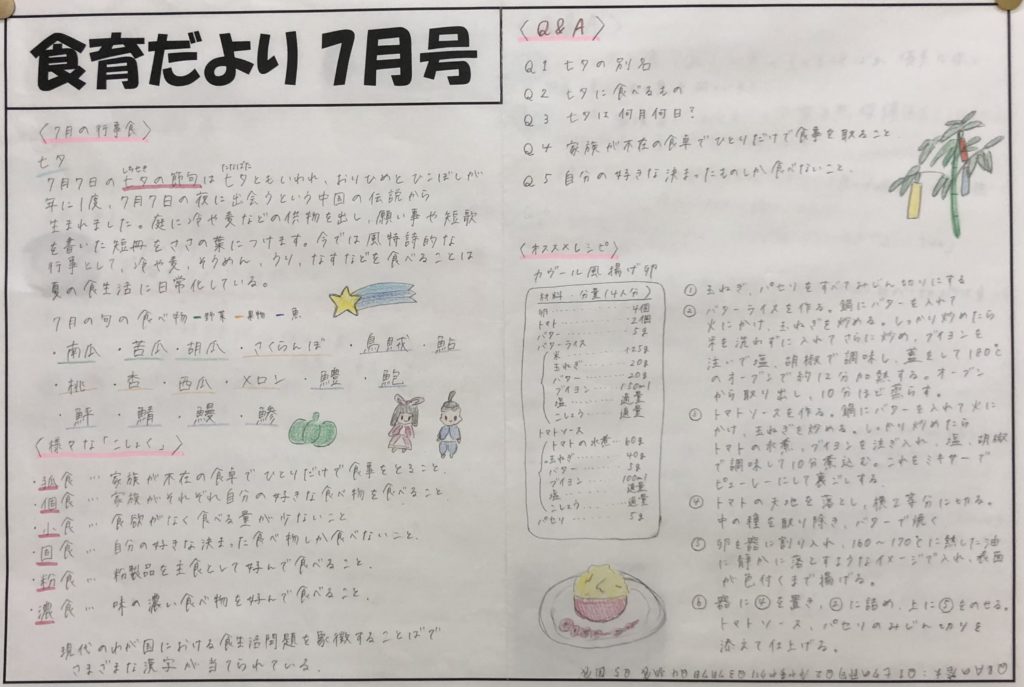 食育だより 7月号
〈7月の行事食〉
七夕
7月7日の七夕の節句は七夕ともいわれ、おりひめとひこぼしが
しちせき
たなばた
年に1度、7月7日の夜に出会うという中国の伝説から
生まれました。庭に冷や麦などの供物を出し、願い事や短歌
を書いた短冊をささの葉につけます。今では風物詩的な
行事として、冷や麦、そうめん、うり、なすなどを食べることは
夏の食生活に日常化している。
7月の旬の食べ物 ー野菜 ー果物 ー魚
・南瓜 ・苦瓜 ・胡瓜 ・さくらんぼ ・烏賊 ・鮎
・桃 ・杏 ・西瓜 ・メロン ・鱧 ・鮑
・鮃 ・鯖 ・鰻 ・鯵
〈様々な「こしょく」〉
・孤食… 家族が不在の食卓でひとりだけで食事をとること。
・個食… 家族がそれぞれ自分の好きな食べ物を食べること
・小食… 食欲がなく食べる量が少ないこと
・固食… 自分の好きな決まった食べ物しか食べないこと。
・粉食… 粉製品を主食として好んで食べること。
・濃食… 味の濃い食べ物を好んで食べること。
現代のわが国における食生活問題を象徴することばで
さまざまな漢字が当てられている。
〈Q&A〉
Q1 七夕の別名
Q2 七夕に食べるもの
Q3 七夕は何月何日?
Q4 家族が不在の食卓でひとりだけで食事を取ること。
Q5 自分の好きな決まったものしか食べないこと。
〈オススメレシピ〉
カヴール風揚げ卵
材料・分量(4人分)
卵………4個
トマト………2個
バター………5g
バターライス
米………125g
玉ねぎ………20g
バター………20g
ブイヨン………150ml
塩………適量
こしょう………適量
トマトソース
トマトの水煮…60g
玉ねぎ………40g
バター………5g
ブイヨン………100ml
塩………適量
こしょう………適量
パセリ………5g
① 玉ねぎ、パセリをすべてみじん切りにする
② バターライスを作る。鍋にバターを入れて
火にかけ、玉ねぎを炒める。しっかり炒めたら
米を洗わずに入れてさらに炒め、ブイヨンを
注いで塩、胡椒で調味し、蓋をして180℃
のオーブンで約12分加熱する。オーブン
から取り出し、10分ほど蒸らす。
③ トマトソースを作る。鍋にバターを入れて火に
かけ、玉ねぎを炒める。しっかり炒めたら
トマトの水煮、ブイヨンを注ぎ入れ、塩、胡椒
で調味して10分煮込む。これをミキサーで
ピューレーにして裏ごしする。
④ トマトの天地を落とし、横2等分に切る。
中の種を取り除き、バターで焼く
⑤ 卵を器に割り入れ、160〜170℃に熱した油
に静かに落とすようなイメージで入れ、表面
が色付くまで揚げる。
⑥ 器に④を置き、②に詰め、上に⑤をのせる。
トマトソース、パセリのみじん切りを
添えて仕上げる。